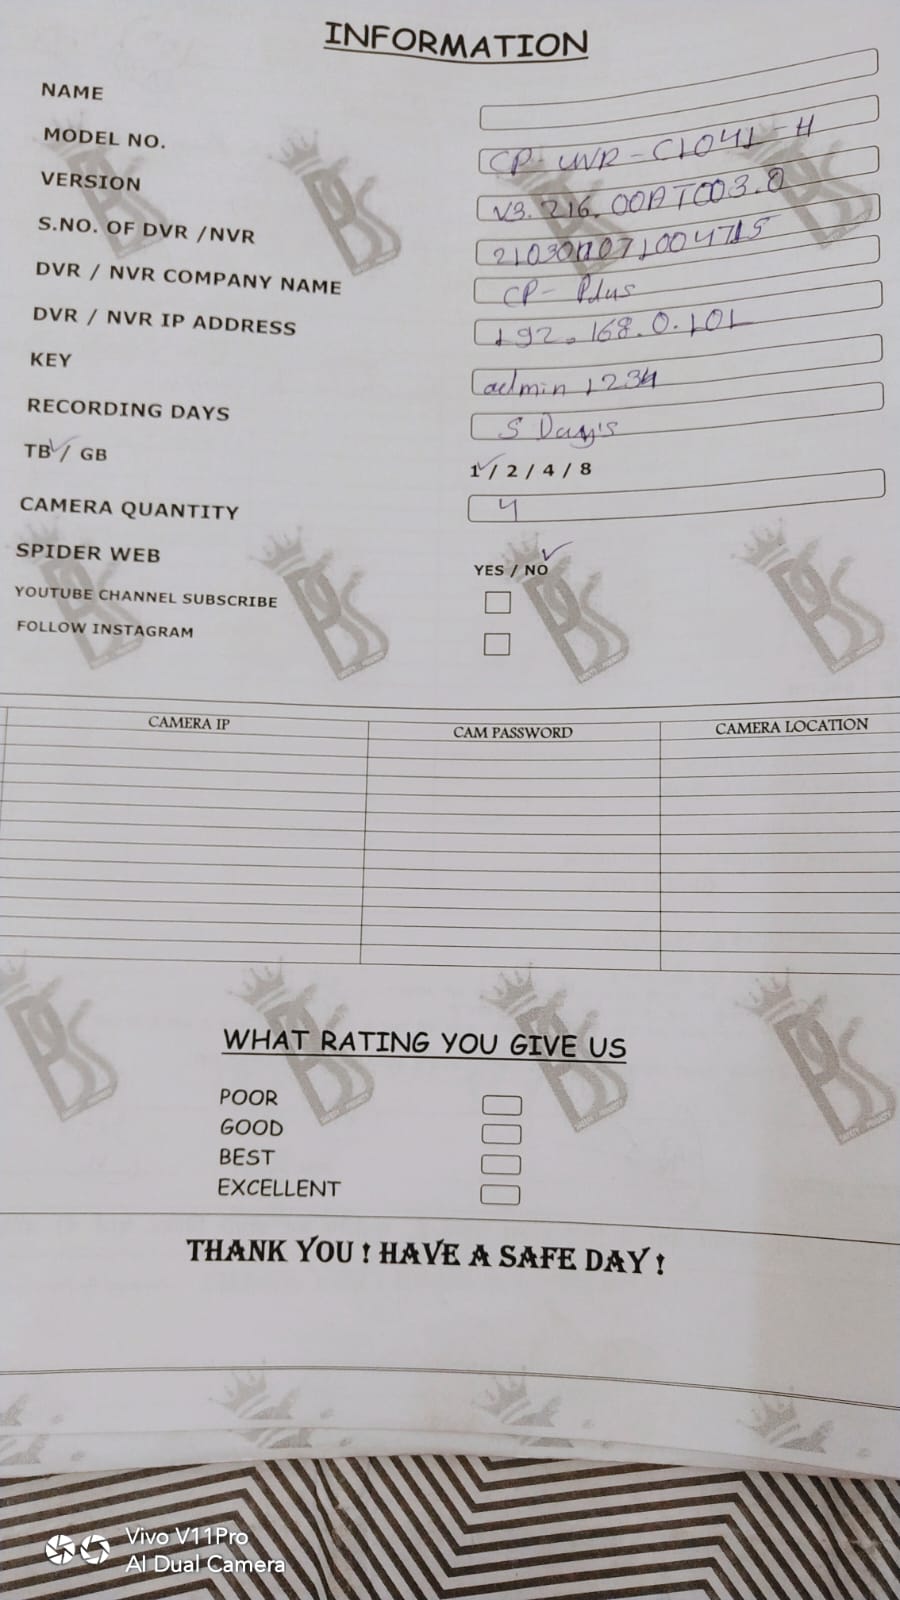 INFORMATION
NAME
MODEL NO. CP-UVR-C1041-H
VERSION
S.NO. OF DVR /NVR
DVR / NVR COMPANY NAME CP- Plus
DVR / NVR IP ADDRESS 192.168.0.101
KEY admin 1234
RECORDING DAYS 5 Day's
TB / GB 1 / 2 / 4 / 8
CAMERA QUANTITY 4
SPIDER WEB YES / NO
YOUTUBE CHANNEL SUBSCRIBE
FOLLOW INSTAGRAM
CAMERA IP CAM PASSWORD CAMERA LOCATION
WHAT RATING YOU GIVE US
POOR
GOOD
BEST
EXCELLENT
THANK YOU ! HAVE A SAFE DAY !
Vivo V11Pro
AI Dual Camera